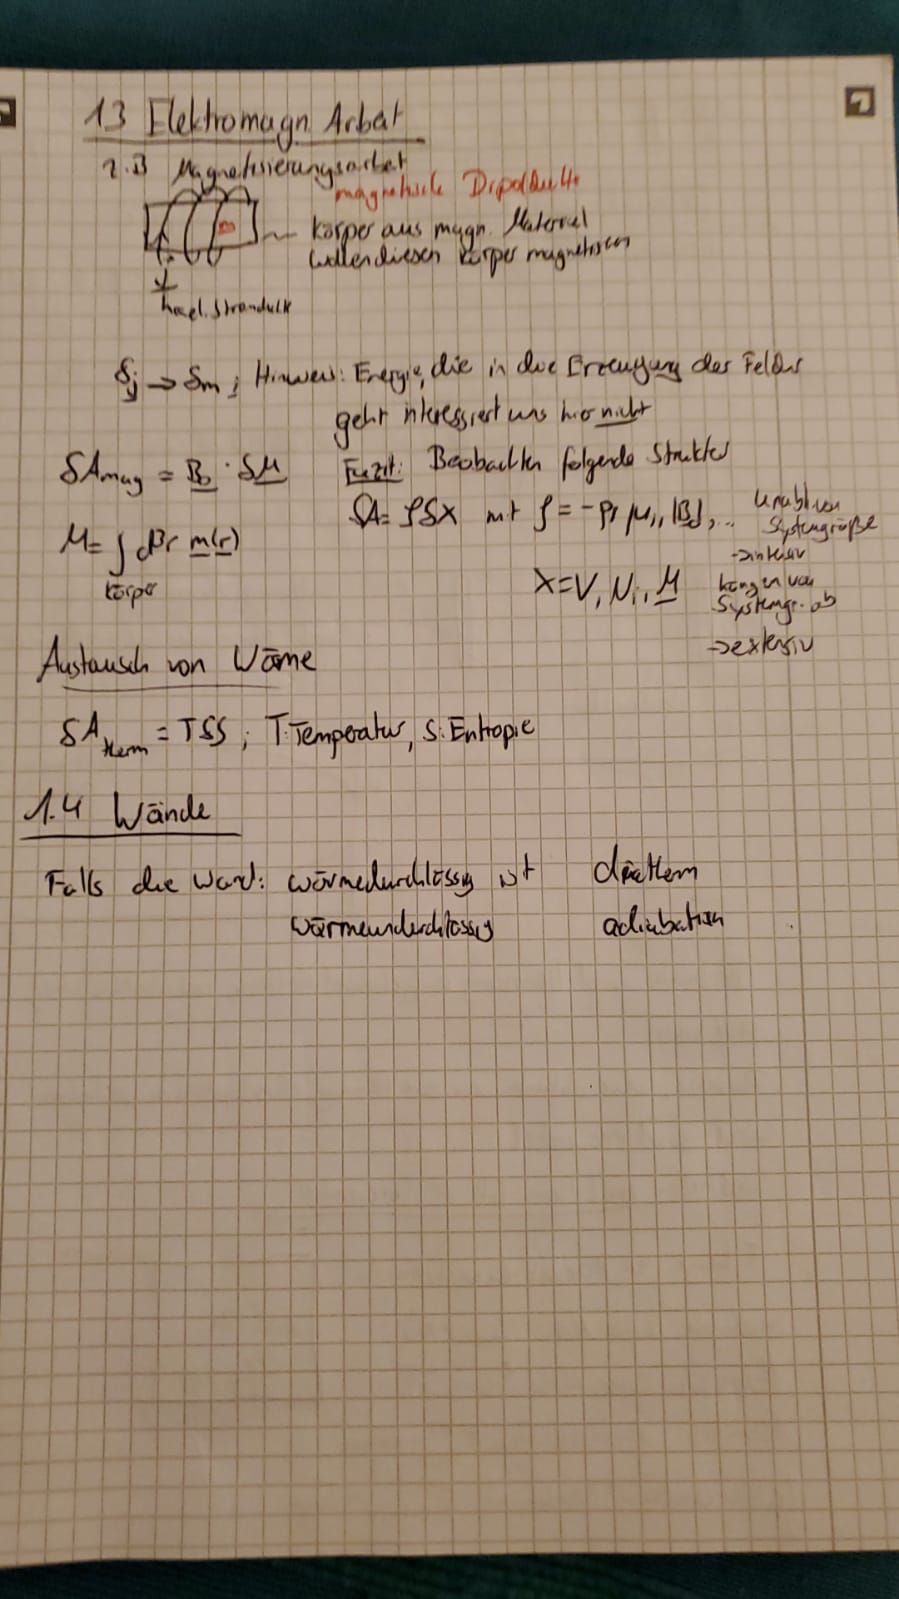 13 Elektromagn. Arbeit
z.B Magnetisierungsarbeit
magnetische
Körper aus magn. Material
wollen diesen Körper magnetisieren
δj → δm; Hinweis: Energie, die in die Erzeugung des Feldes
geht interessiert uns hier nicht
δA_mag = B_0 · δM
Fazit: Beobachten folgende Struktur
M = ∫ d³r m(r)
Körper
δA = ζδX mit ζ = -p, μ_i, |B_0|, ...
unabh. von
Systemgröße
→ intensiv
X = V, N_i, M
hängen von
Systemgr. ab
→ extensiv
Austausch von Wärme
δA_therm = TδS; T: Temperatur, S: Entropie
1.4 Wände
Falls die Wand: wärmedurchlässig ist diatherm
wärmeundurchlässig adiabatisch